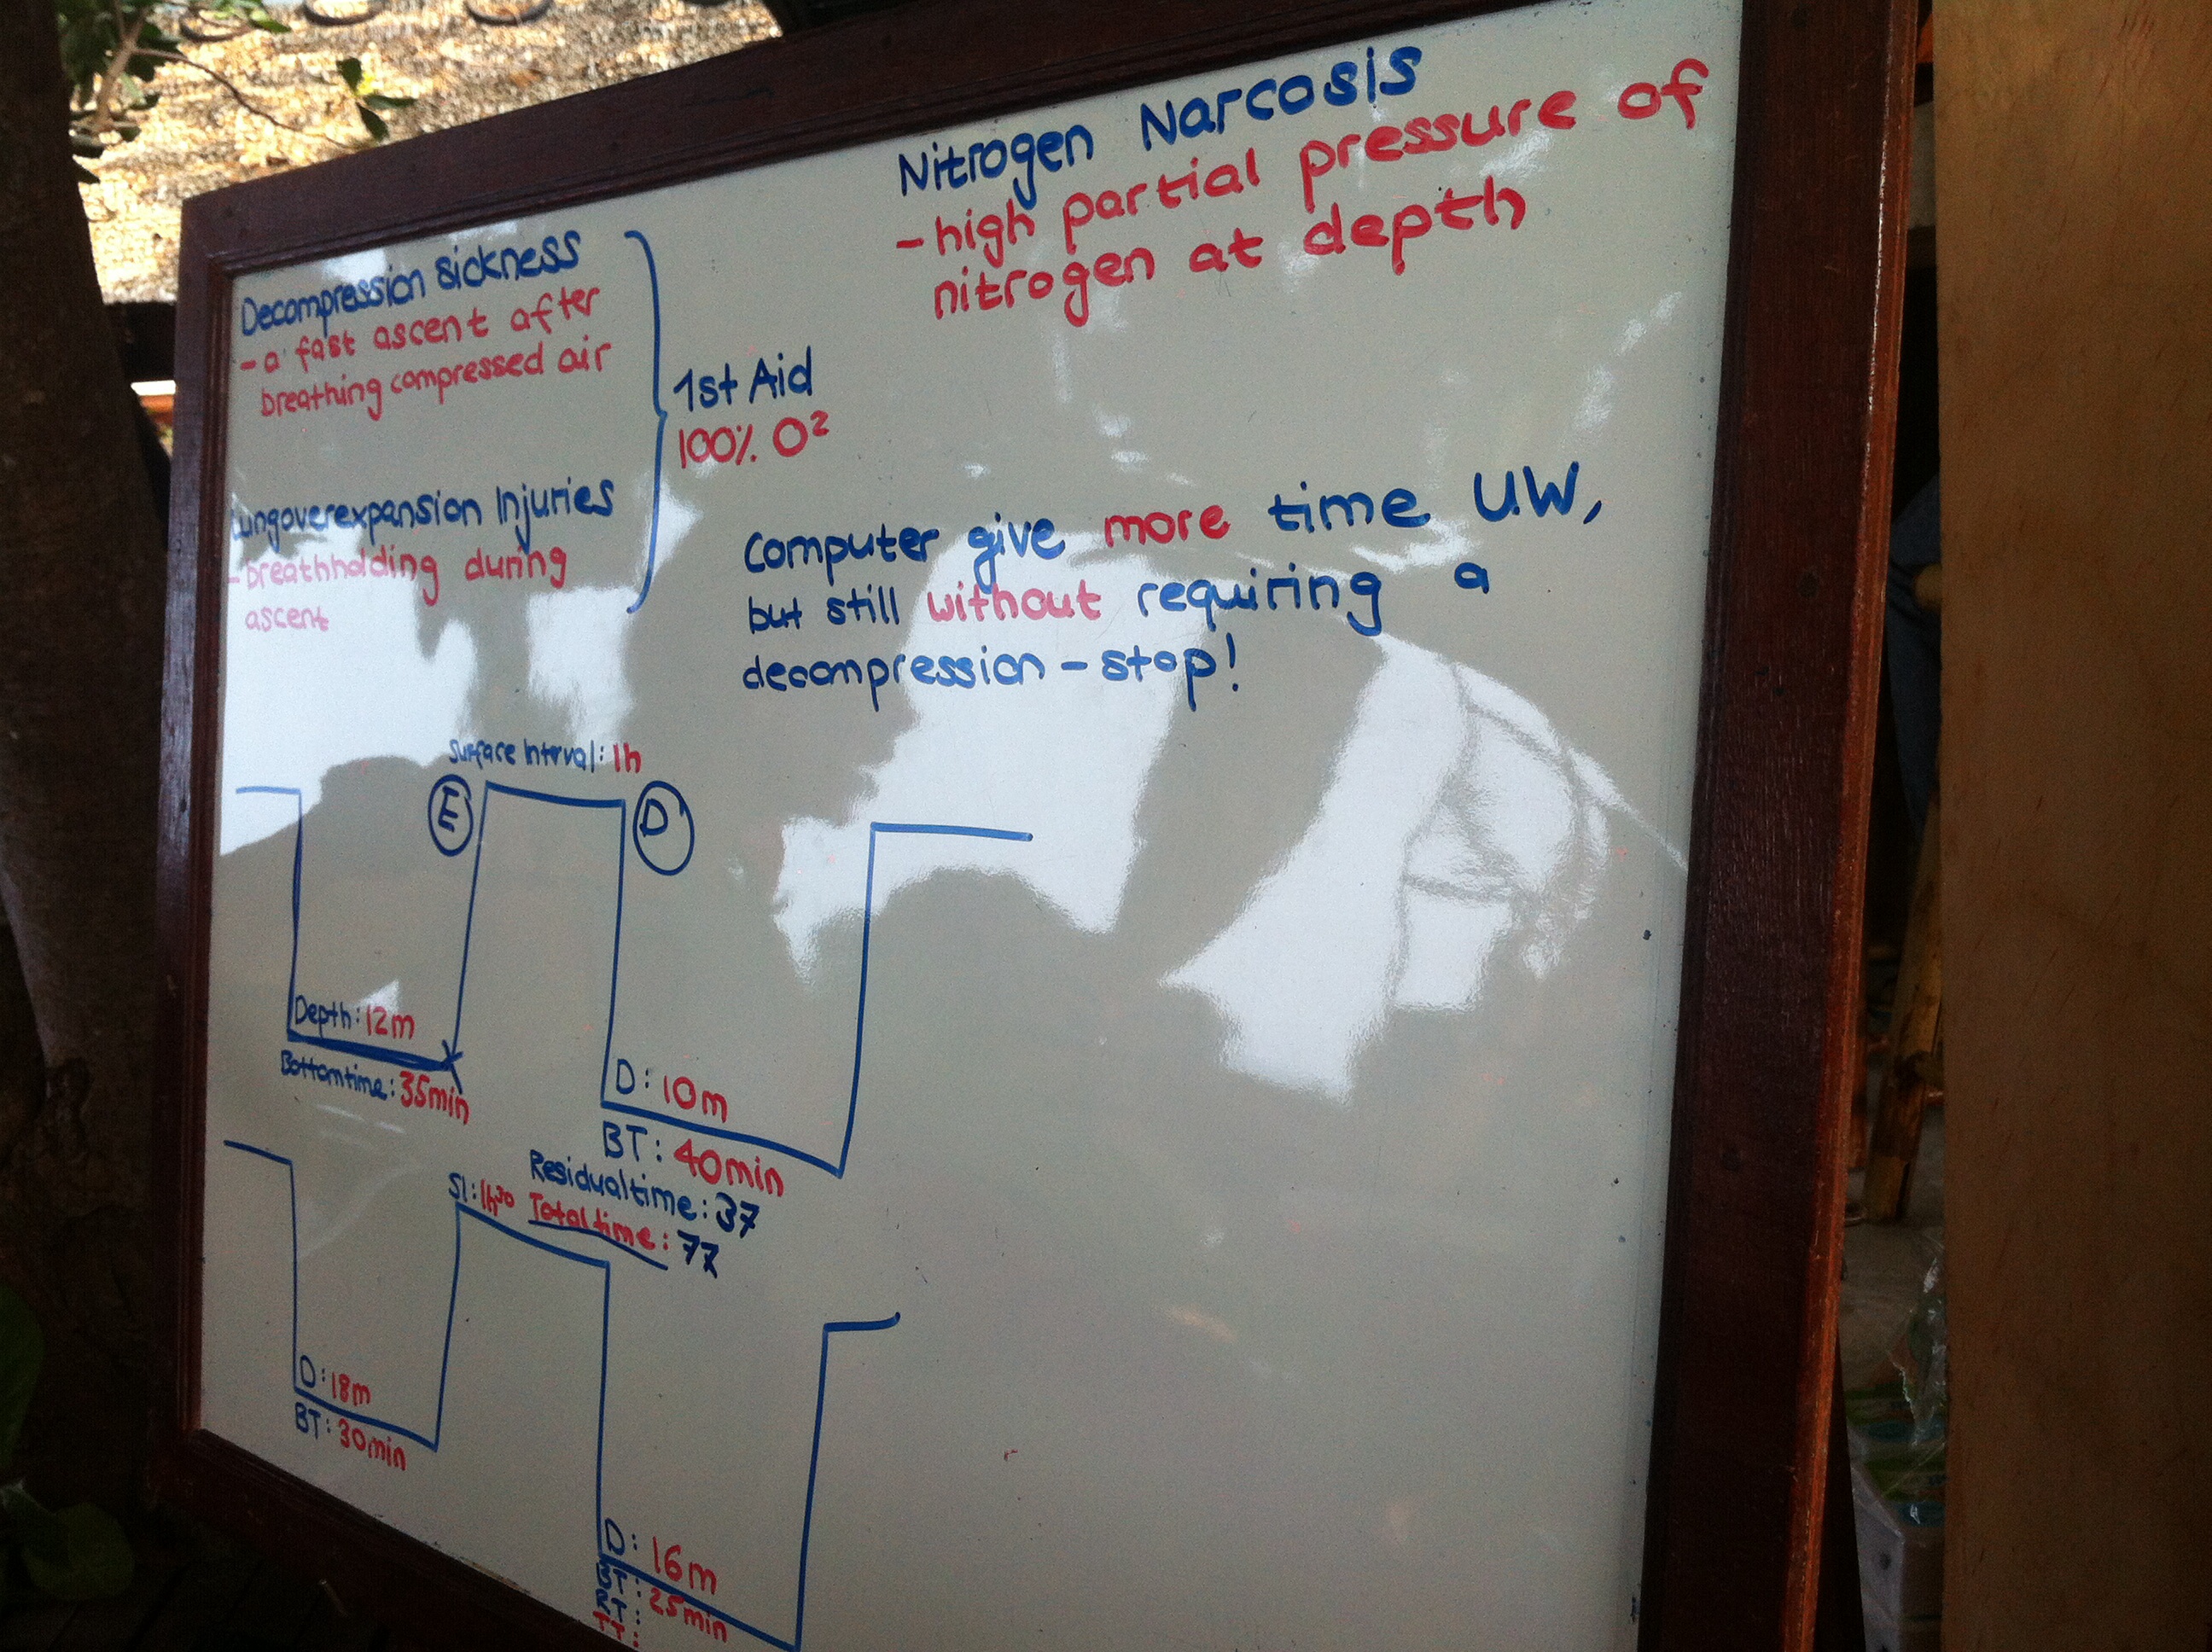 Nitrogen Narcosis
-high partial pressure of
nitrogen at depth
Decompression sickness
-a fast ascent after
breathing compressed air
1st Aid
100% O²
Lungoverexpansion Injuries
-breathholding during
ascent
Computer give more time UW,
but still without requiring a
decompression-stop!
Surface Intrval: 1h
E
D
Depth: 12m
Bottomtime: 35min
D: 10m
BT: 40min
Residualtime: 37
Total time: 77
SI: 1h30
D: 18m
BT: 30min
D: 16m
BT: 25min
RT:
TT: